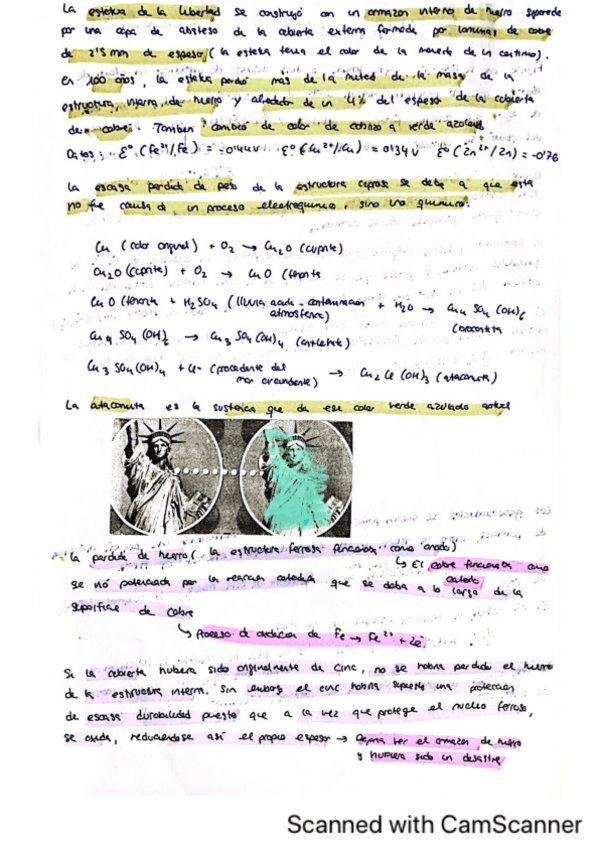 La estatua de la libertad se construyó con un armazon interno de hierro separado
por una capa de absteso de la cubierta externa formada por laminas de cobre
de 2'5 mm de espesor (la estatua tenia el color de la moneda de un centimo).
En 100 años, la estatua perdió más de la mitad de la masa de la
estructura interna de hierro y alrededor de un 4% del espesor de la cubierta
de cobre. Tambien cambió de color de cobrizo a verde azulado
Datos: ε° (Fe²⁺/Fe) = -0'44V ε° (Cu²⁺/Cu) = 0'34V ε° (Zn²⁺/Zn) = -0'76
La escasa perdida de peso de la estructura cuprosa se debe a que esta
no fue causa d un proceso electroquimico, sino uno quimico:
Cu (color original) + O₂ → Cu₂O (cuprita)
Cu₂O (cuprita) + O₂ → CuO (tenorita
CuO (tenorita + H₂SO₄ (lluvia acida - contaminación atmosferica) + H₂O → Cu₄ SO₄ (OH)₆ (brocantita
Cu₄ SO₄ (OH)₆ → Cu₃ SO₄ (OH)₄ (antlerita)
Cu₃ SO₄ (OH)₄ + Cl- (procedente del mar circundante) → Cu₂ Cl (OH)₃ (atacamita)
La atacamita es la sustancia que da ese color verde azulado actual
La perdida de hierro (la estructura ferrosa funcionaba como anodo)
↳ El cobre funcionaba como catodo
se vió potenciada por la reaccion catodica que se daba a lo largo de la
superficie de cobre
↳ Proceso de oxidacion de Fe → Fe²⁺ + 2e⁻
Si la cubierta hubiera sido originalmente de cinc, no se habria perdido el hierro
de la estructura interna. Sin embargo el cinc habria supuesto una proteccion
de escasa durabilidad puesto que a la vez que protege el nucleo ferroso,
se oxida, reduciendose asi el propio espesor → Dejaria ver el armazon de hierro
y hubiera sido un desastre
Scanned with CamScanner